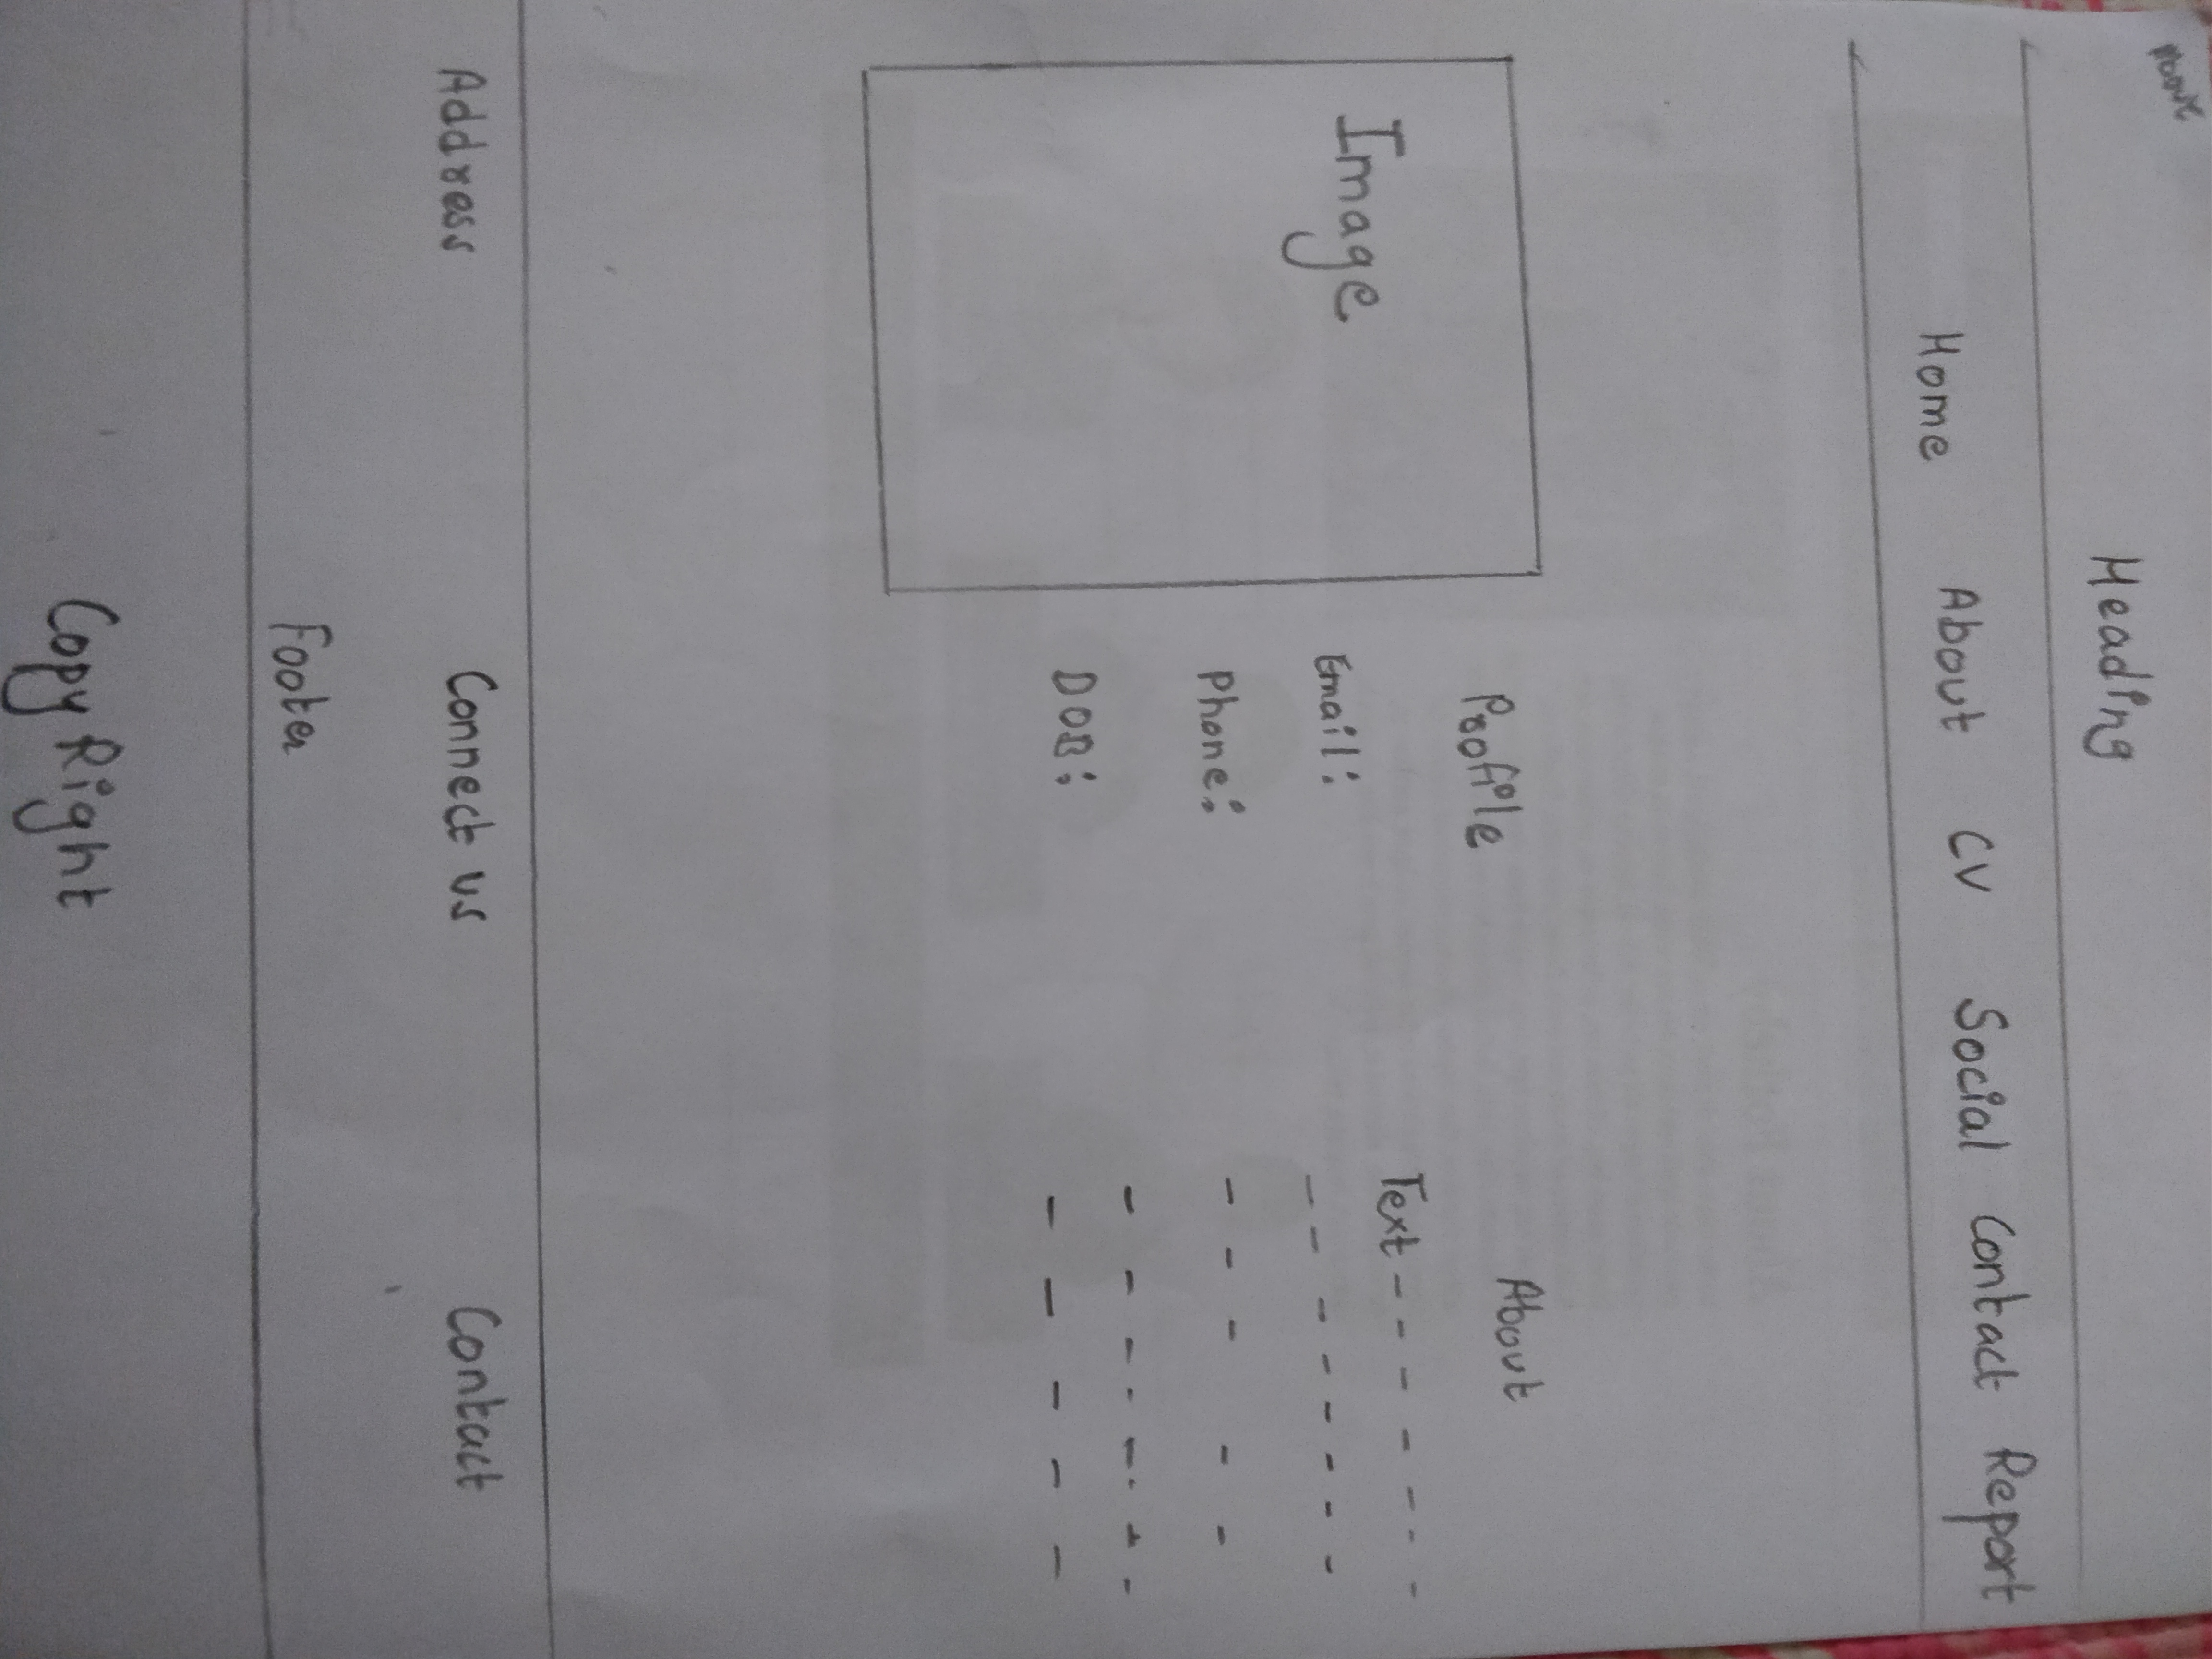 About
Heading
Home About CV Social Contact Report
Image
Profile
Email:
Phone:
DOB:
About
Text
Address Connect us Contact
Footer
Copy Right